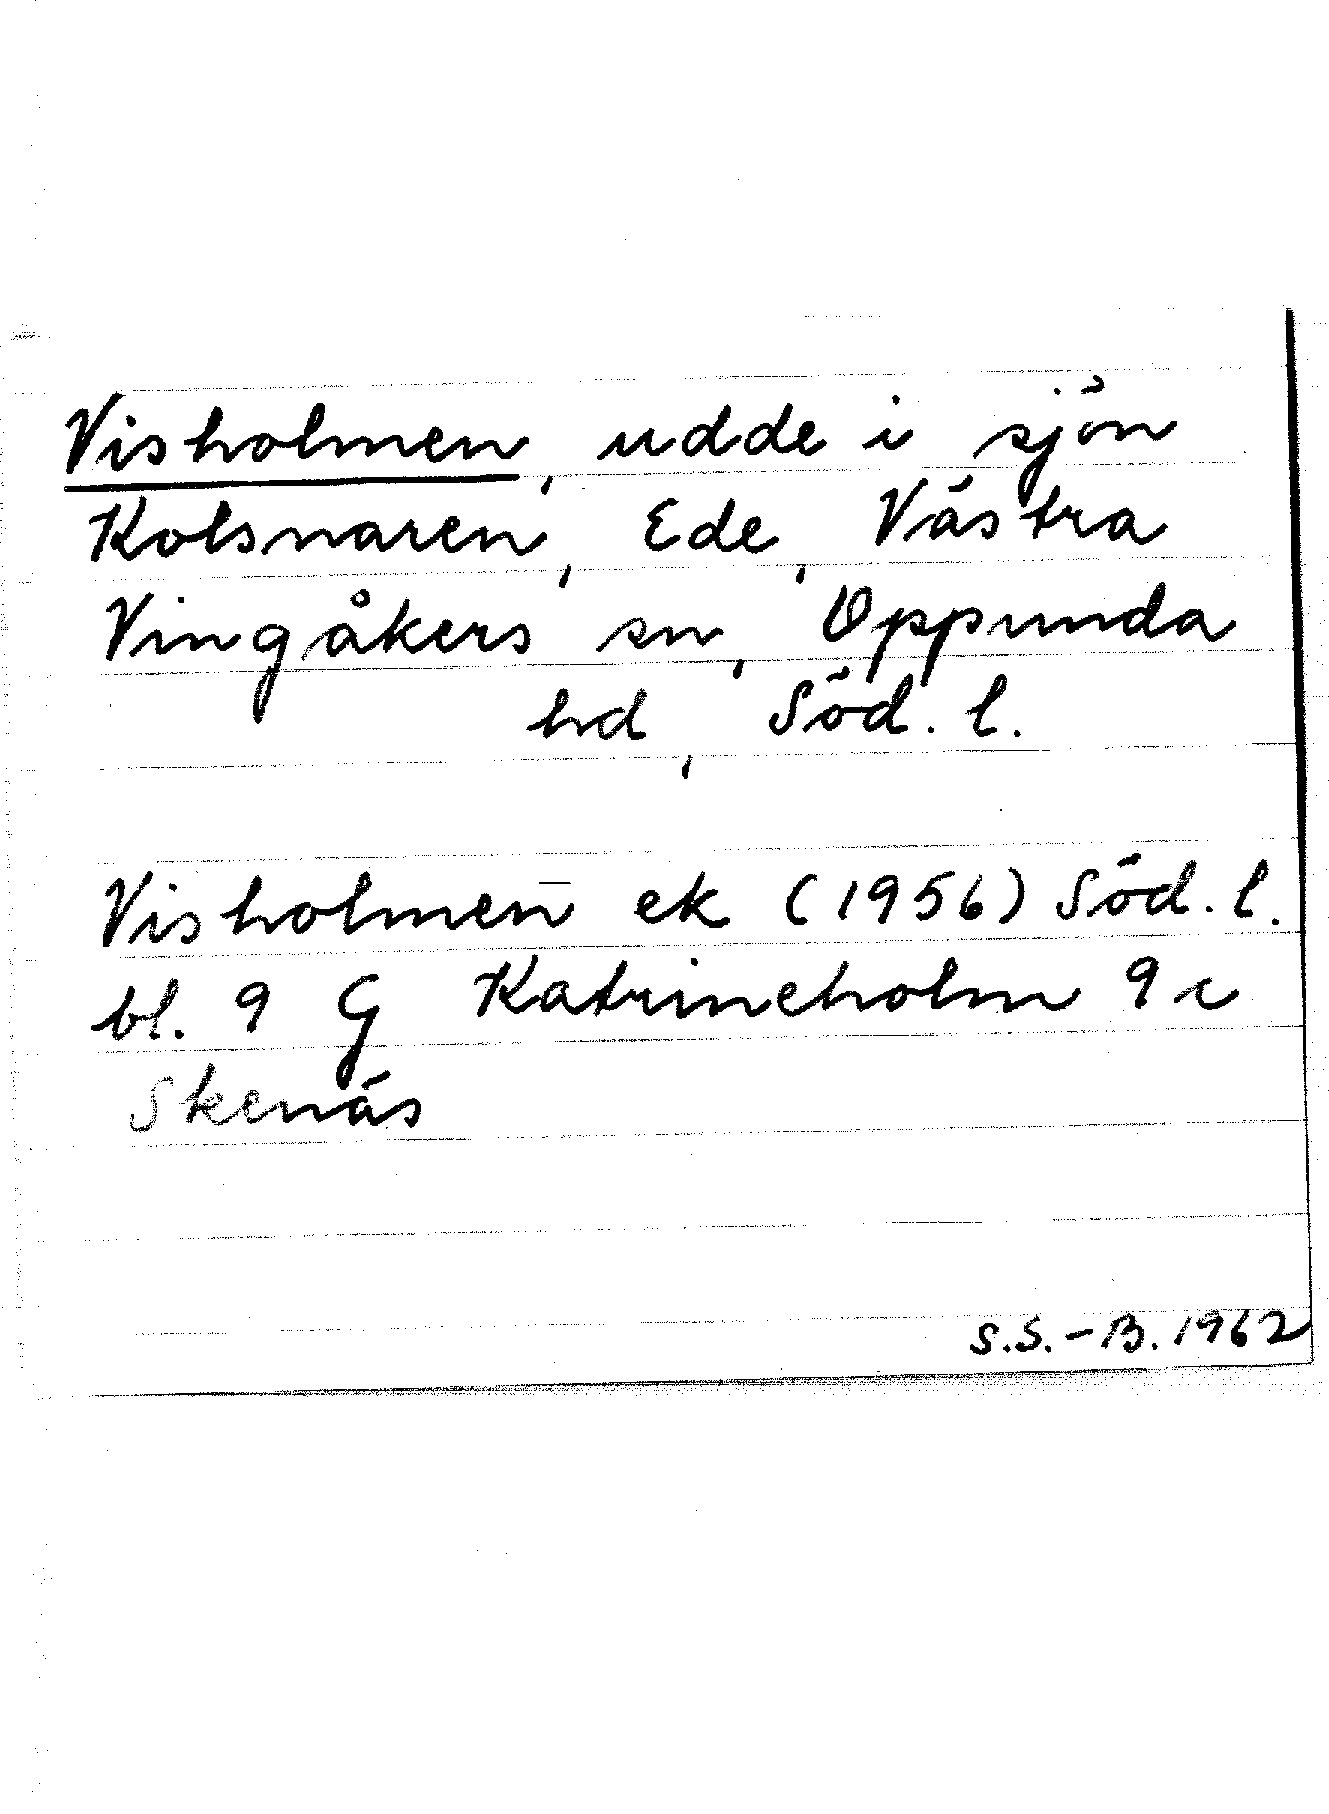 Visholmen, udde i sjön
Kolsnaren, Ede, Västra
Vingåkers sn, Oppunda
hd, Söd. l.
Visholmen ek (1956) Söd. l.
bl. 9 G Katrineholm 9 c
Skenäs
S.S.-B. 1962